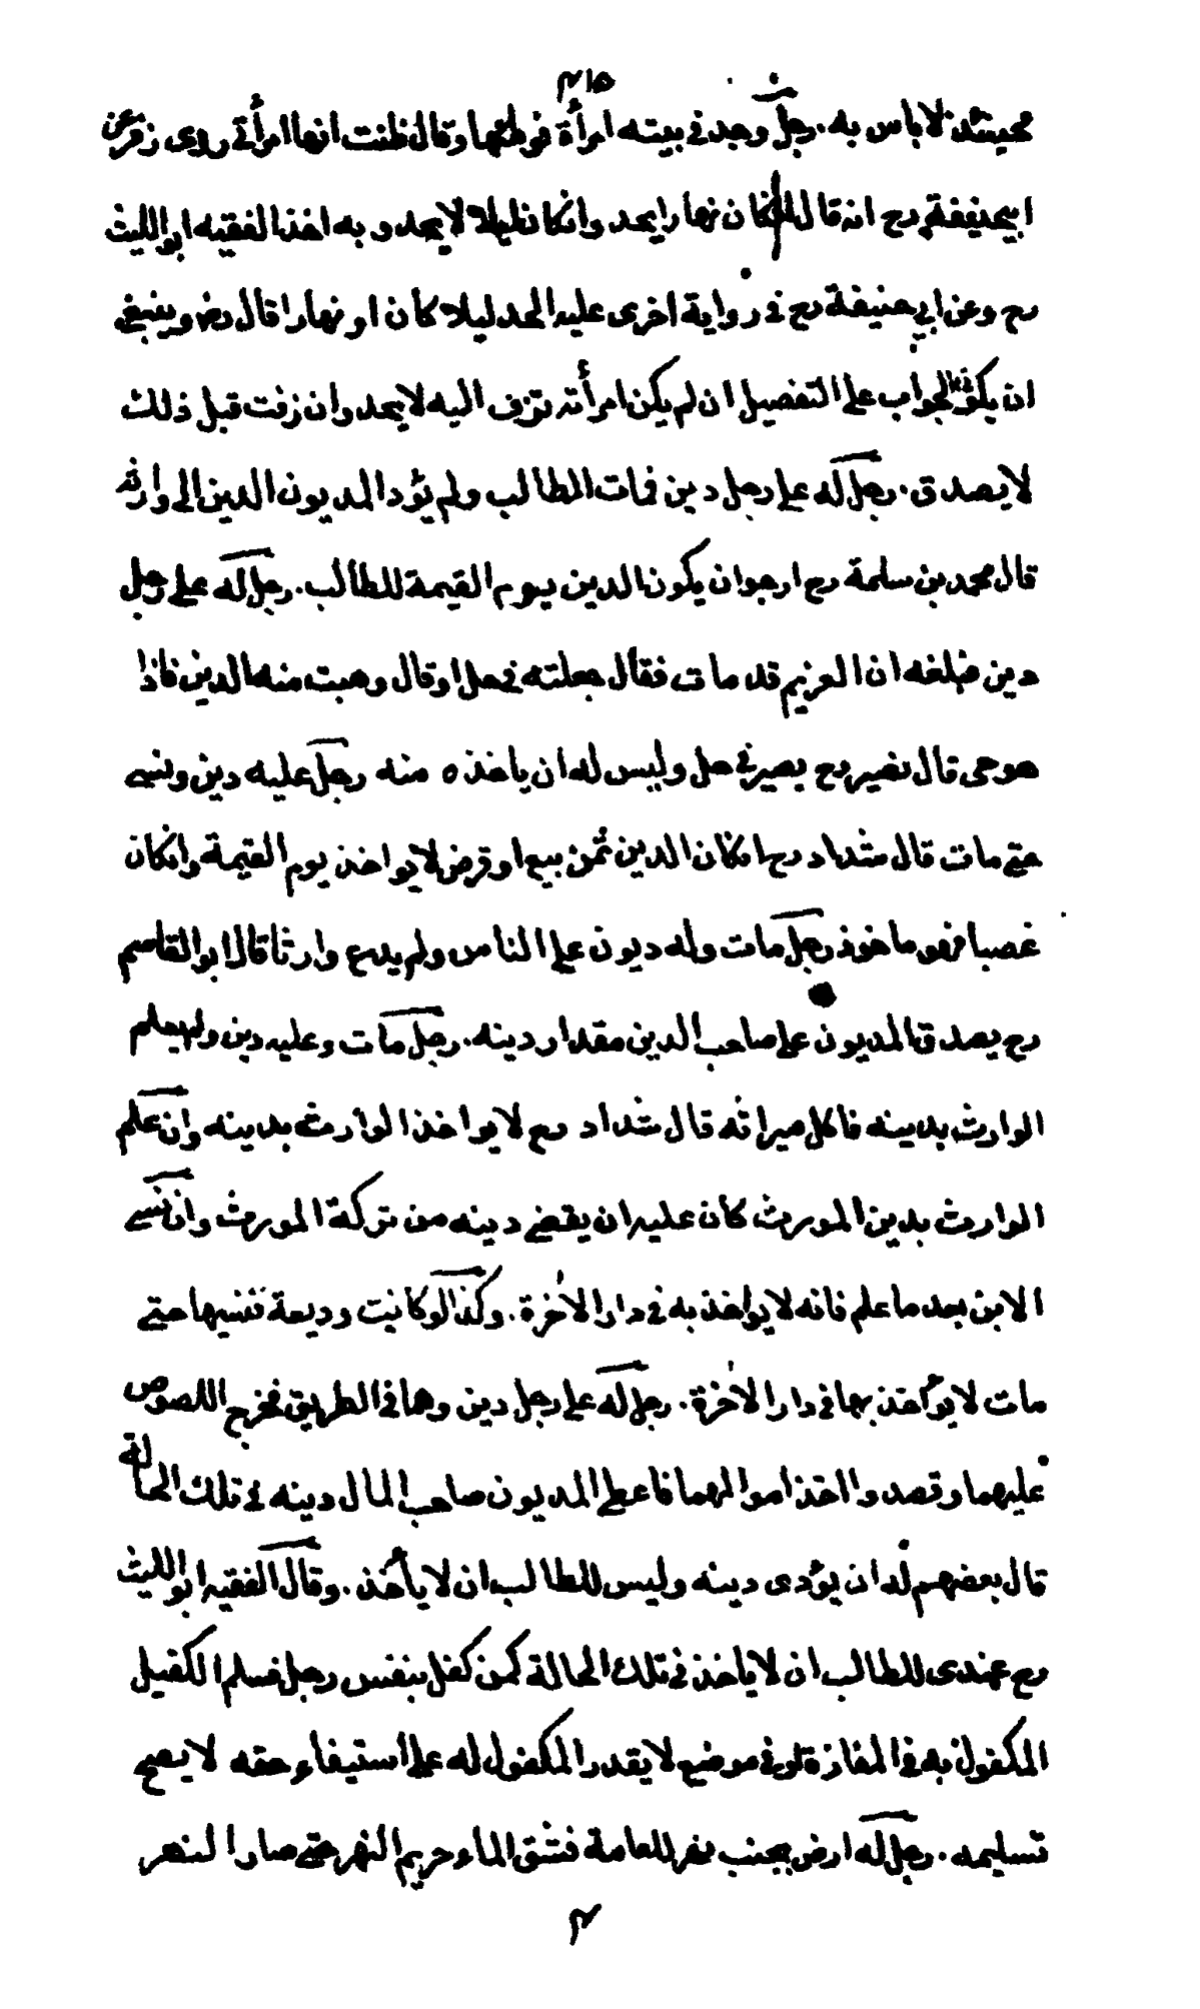 ٣١٥
فحينئذ لا باس به . رجل وجد في بيته امرأة فوطئها وقال ظننت انها امرأتي روى زفر عن
ابيحنيفة رح انه قال كان نهارا يحد وانكان ليلا لا يحد و به اخذ الفقيه ابو الليث
رح وعن ابي حنيفة رح في رواية اخرى عليه الحد ليلا كان او نهارا قال رض وينبغي
ان يكون الجواب على التفصيل ان لم يكن امرأته تزف اليه لا يحد وان زفت قبل ذلك
لا يصدق . رجل له على رجل دين فمات المطالب ولم يؤد المديون الدين الى وارثه
قال محمد بن سلمة رح ارجو ان يكون الدين يوم القيمة للطالب . رجل له على رجل
دين فبلغه ان الغريم قد مات فقال جعلته في حل او قال وهبت منه الدين فاذا
هو حى قال نصير رح يصير في حل وليس له ان ياخذه منه رجل عليه دين ونسي
حتى مات قال شداد رح انكان الدين ثمن بيع او قرض لا يواخذ يوم القيمة وانكان
غصبا فهو ماخوذ رجل مات وله ديون على الناس ولم يدع وارثا قال ابو القاسم
رح يصدق المديون على صاحب الدين مقدار دينه . رجل مات وعليه دين ولم يعلم
الوارث بدينه فاكل ميراثه قال شداد رح لا يواخذ الوارث بدينه وان علم
الوارث بدين المورث كان عليه ان يقضي دينه من تركة المورث وان نسي
الابن بعد ما علم فانه لا يواخذ به في دار الاخرة . وكذا لو كانت وديعة فنسيها حتى
مات لا يؤاخذ بها في دار الاخرة . رجل له على رجل دين وهما في الطريق فخرج اللصوص
عليهما وقصدوا اخذ اموالهما فاعطى المديون صاحب المال دينه في تلك الحالة
قال بعضهم له ان يؤدى دينه وليس للطالب ان لا يأخذ . وقال الفقيه ابو الليث
رح عندى للطالب ان لا ياخذ في تلك الحالة كمن كفل بنفس رجل فسلم الكفيل
المكفول به في المفازة او في موضع لا يقدر المكفول له على استيفاء حقه لا يصح
تسليمه . رجل له ارض بجنب نهر للعامة فشق الماء حريم النهر حتى صار النهر